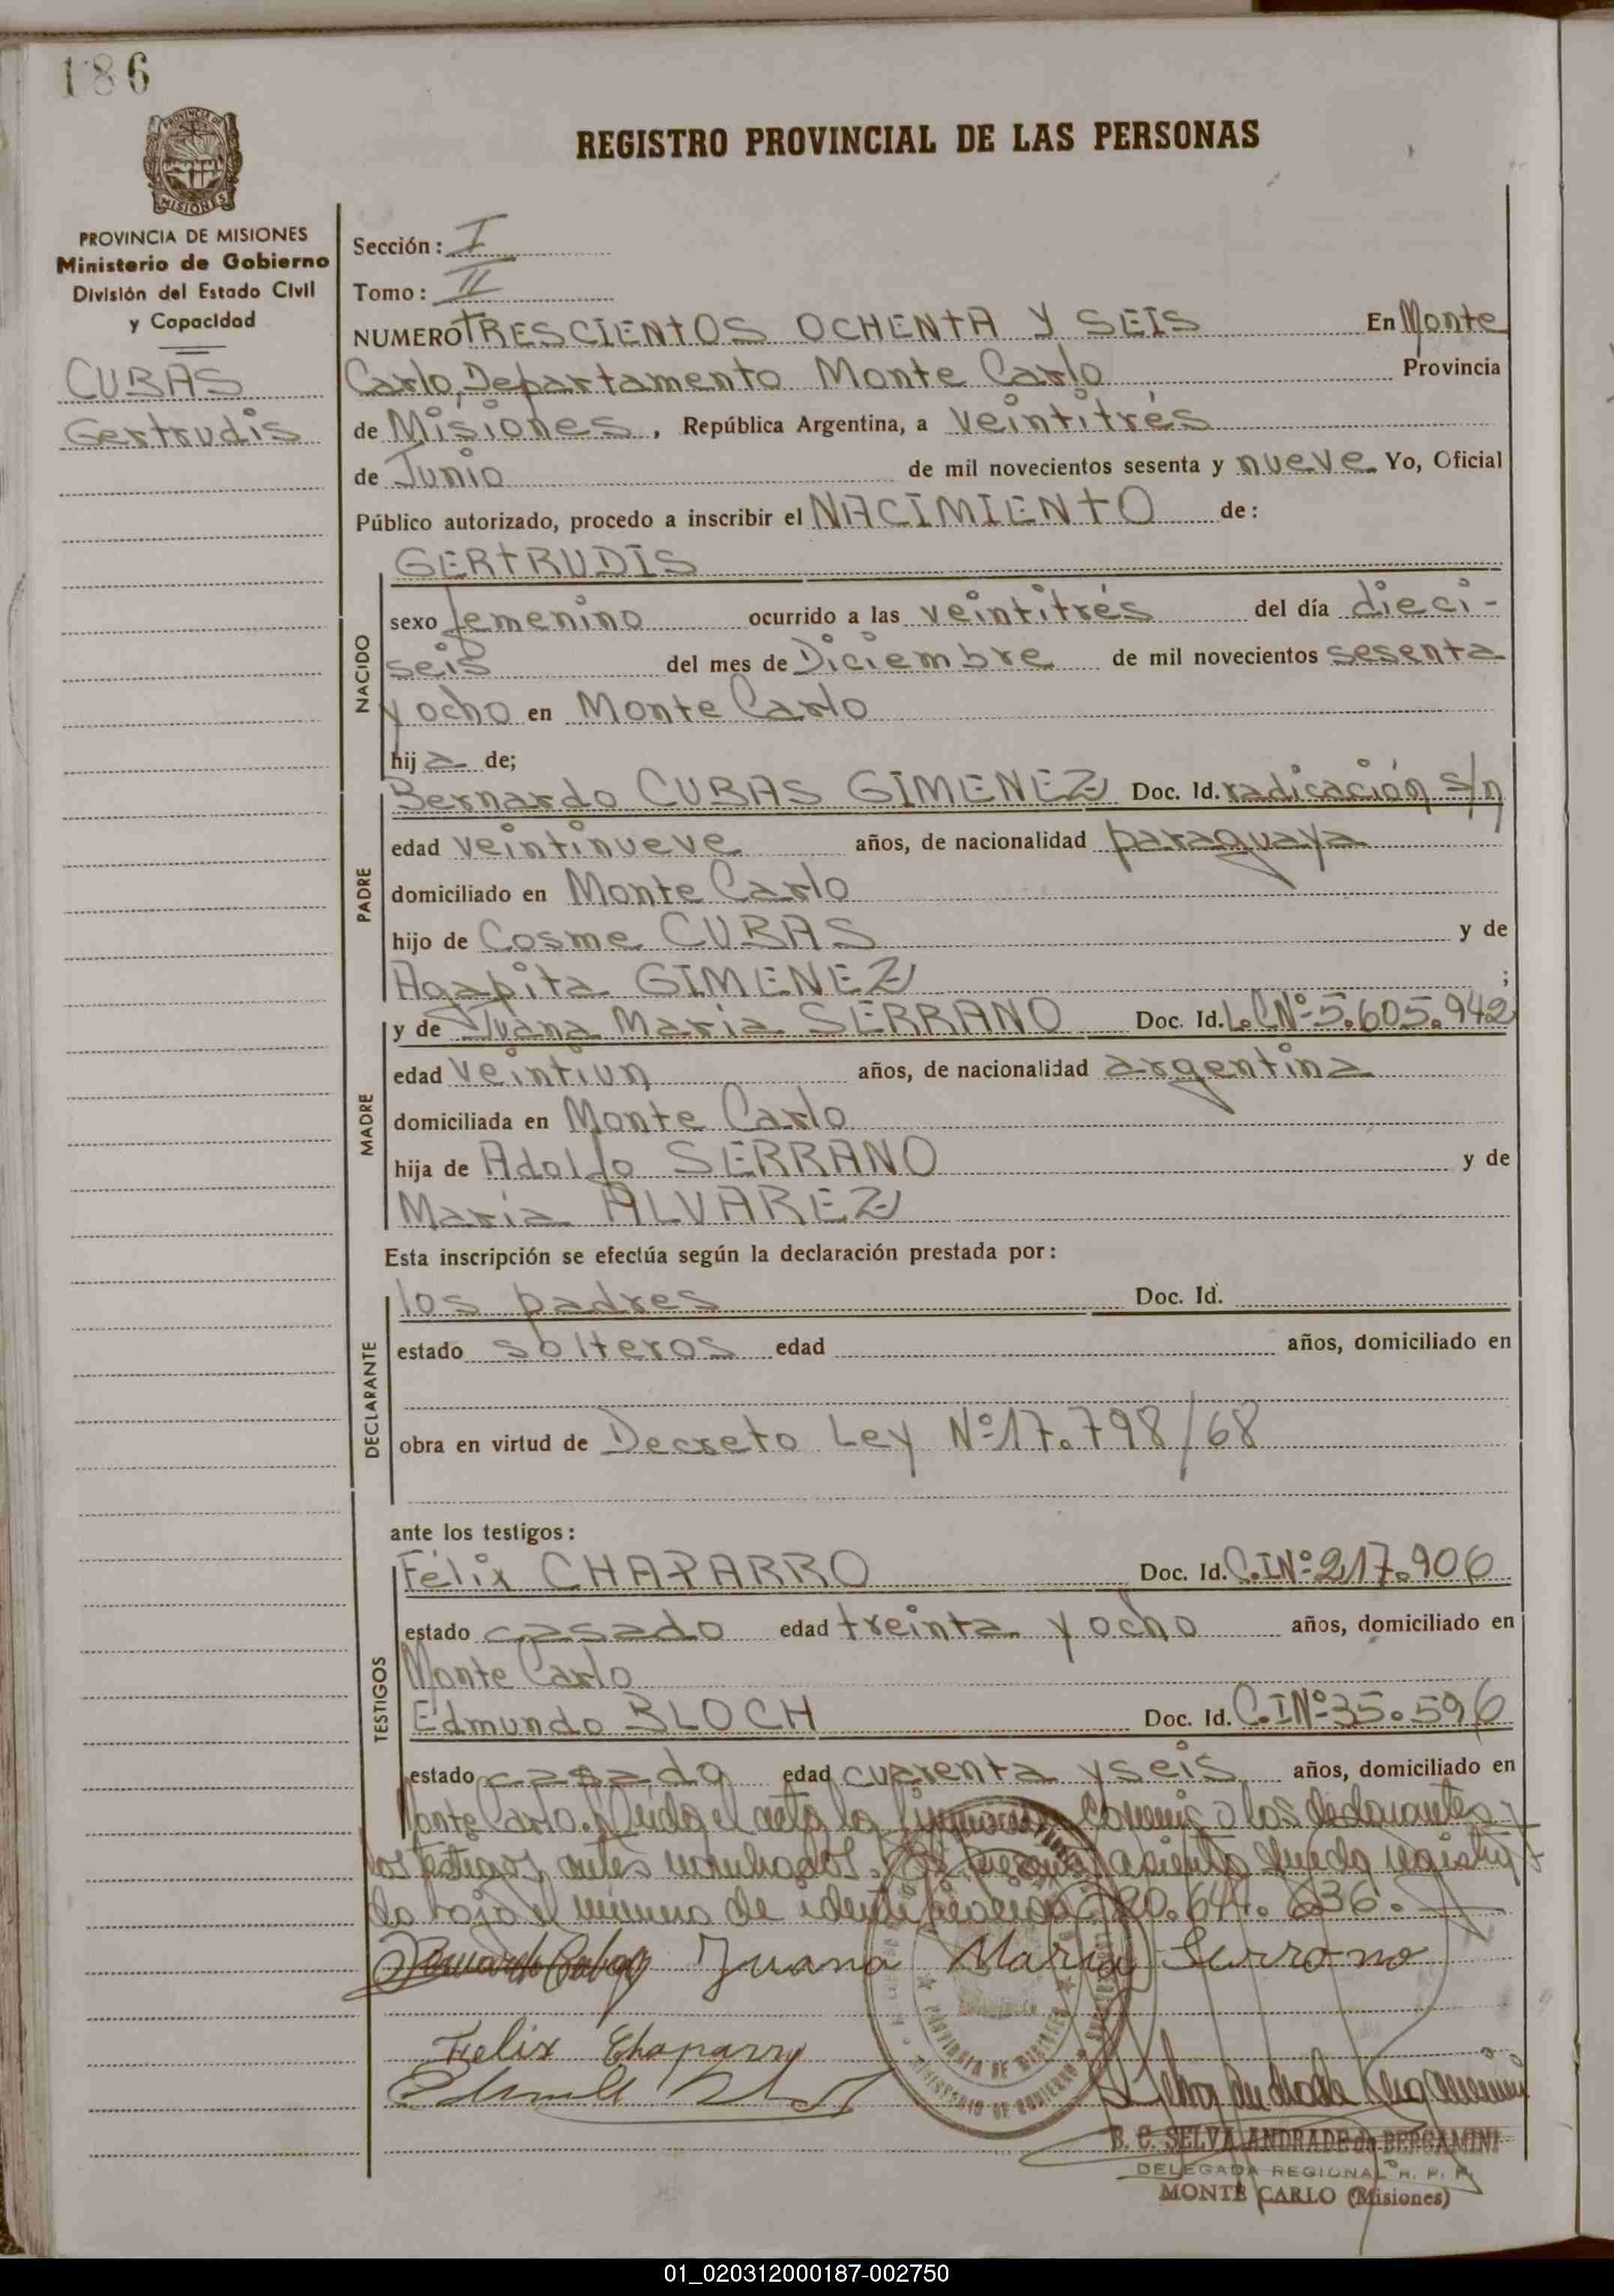 186
REGISTRO PROVINCIAL DE LAS PERSONAS
PROVINCIA DE
MISIONES
PROVINCIA DE MISIONES
Ministerio de Gobierno
División del Estado Civil
y Capacidad
CUBAS
Gertrudis
Sección: I
Tomo: II
NUMERO TRESCIENTOS OCHENTA Y SEIS En Monte
Carlo, Departamento Monte Carlo Provincia
de Misiones, República Argentina, a veintitrés
de Junio de mil novecientos sesenta y nueve Yo, Oficial
Público autorizado, procedo a inscribir el NACIMIENTO de:
GERTRUDIS
NACIDO
sexo femenino ocurrido a las veintitrés del día dieci-
seis del mes de Diciembre de mil novecientos sesenta
y ocho en Monte Carlo
hija de;
PADRE
Bernardo CUBAS GIMENEZ Doc. Id. radicación s/n
edad veintinueve años, de nacionalidad paraguaya
domiciliado en Monte Carlo
hijo de Cosme CUBAS y de
Agapita GIMENEZ ;
MADRE
y de Juana Maria SERRANO Doc. Id. L.C Nº 5.605.942
edad veintiun años, de nacionalidad argentina
domiciliada en Monte Carlo
hija de Adolfo SERRANO y de
Maria ALVAREZ
Esta inscripción se efectúa según la declaración prestada por:
DECLARANTE
los padres Doc. Id.
estado solteros edad años, domiciliado en
obra en virtud de Decreto Ley Nº 17.798/68
ante los testigos:
TESTIGOS
Félix CHAPARRO Doc. Id. C.I Nº 217.906
estado casado edad treinta y ocho años, domiciliado en
Monte Carlo
Edmundo BLOCH Doc. Id. C.I Nº 35.596
estado casado edad cuarenta y seis años, domiciliado en
Monte Carlo. Leída el acta la firman conmigo los declarantes y
los testigos antes nombrados. El presente asiento queda registra
do bajo el número de identificación 20.644.636.
Bernardo Cubas Juana Maria Serrano
Felix Chaparro
PROVINCIA DE MISIONES
MINISTERIO DE GOBIERNO
B. C. SELVA ANDRADE de BERGAMINI
DELEGADA REGIONAL R. P. P.
MONTE CARLO (Misiones)
01_020312000187-002750